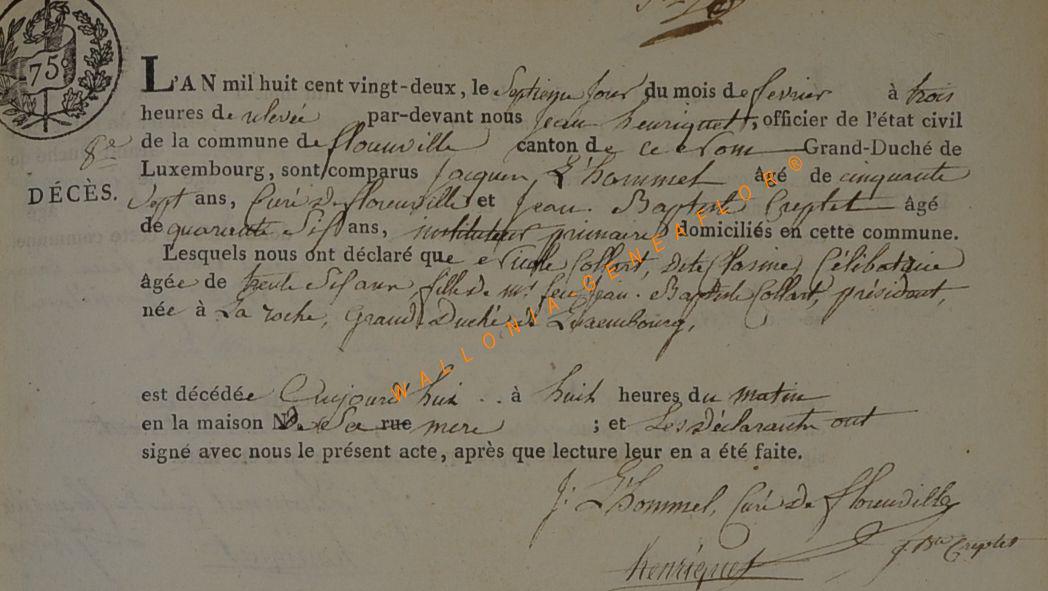 75
L'AN mil huit cent vingt-deux, le Septieme jour du mois de fevrier à trois
heures de relevée par-devant nous Jean henriquet, officier de l'état civil
de la commune de florenville canton de ce nom Grand-Duché de
8e
Luxembourg, sont comparus Jacques L'hommel âgé de cinquante
DÉCÈS.
Sept ans, Curé de florenville et Jean Baptiste Creptet âgé
de quarante Six ans, instituteur primaire domiciliés en cette commune.
Lesquels nous ont déclaré que Collart, Dite Célibataire
âgée de trente Six ans, fille de mr. feu Jean Baptiste Collart, président,
née à La roche, Grand Duché de Luxembourg,
est décédée aujourd'hui à huit heures du matin
en la maison de Sa rue mere ; et Les Déclarants ont
signé avec nous le présent acte, après que lecture leur en a été faite.
J. L'hommel, Curé de florenville
henriquet J. Bte Creptet
WALLONIA GENEAFLOR®